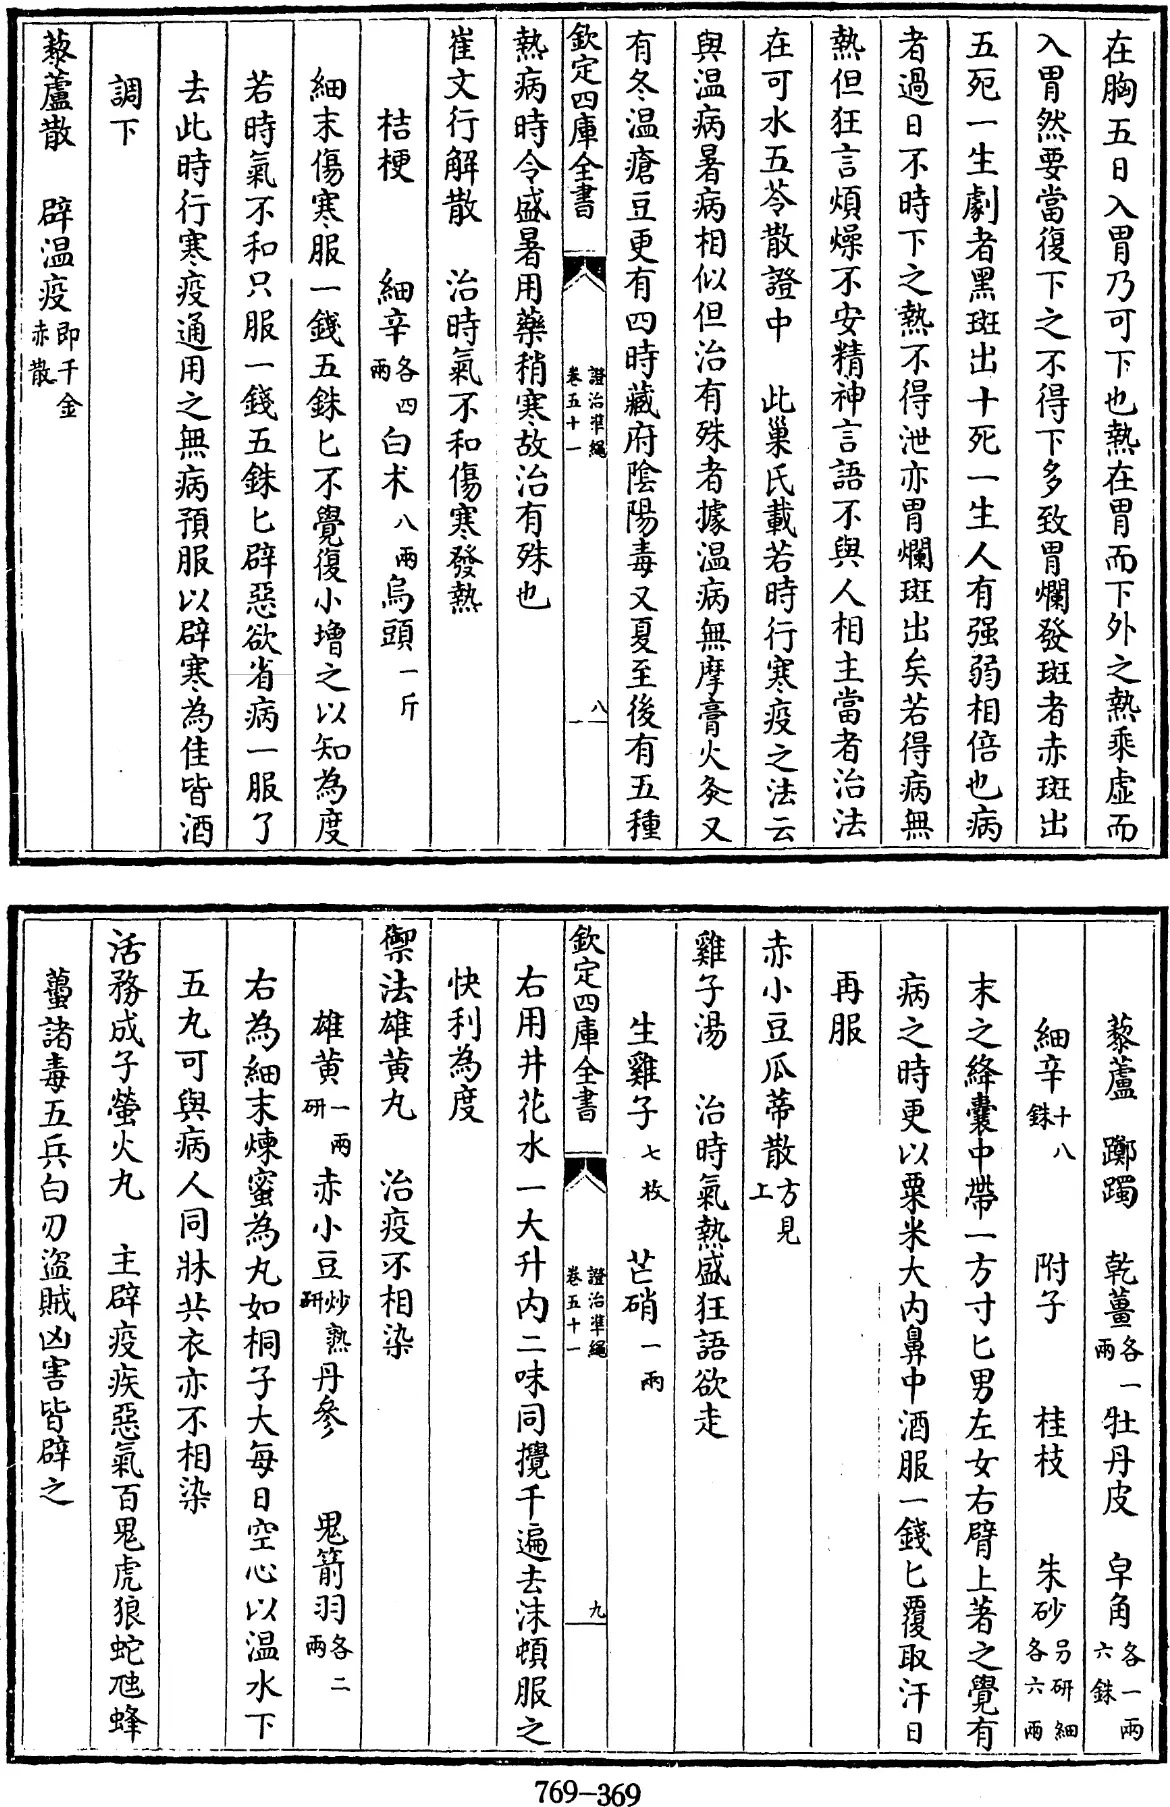 在胸五日入胃乃可下也熱在胃而下外之熱乘虛而
入胃然要當復下之不得下多致胃爛發斑者赤斑出
五死一生劇者黑斑出十死一生人有强弱相倍也病
者過日不時下之熱不得泄亦胃爛斑出矣若得病無
熱但狂言煩燥不安精神言語不與人相主當者治法
在可水五苓散證中　此巢氏載若時行寒疫之法云
與温病暑病相似但治有殊者據温病無摩膏火灸又
有冬温瘡豆更有四時藏府陰陽毒又夏至後有五種
欽定四庫全書　證治準繩卷五十一　八
熱病時令盛暑用藥稍寒故治有殊也
崔文行解散　治時氣不和傷寒發熱
桔梗　細辛各四兩　白术八兩　烏頭一斤
細末傷寒服一錢五銖匕不覺復小增之以知為度
若時氣不和只服一錢五銖匕辟惡欲省病一服了
去此時行寒疫通用之無病預服以辟寒為佳皆酒
調下
藜蘆散　辟温疫即千金赤散
藜蘆　躑躅　乾薑各一兩　牡丹皮　皁角各一兩六銖
細辛十八銖　附子　桂枝　朱砂另研細各六兩
末之絳囊中帶一方寸匕男左女右臂上著之覺有
病之時更以粟米大内鼻中酒服一錢匕覆取汗日
再服
赤小豆瓜蒂散方見上
雞子湯　治時氣熱盛狂語欲走
生雞子七枚　芒硝一兩
欽定四庫全書　證治準繩卷五十一　九
右用井花水一大升内二味同攪千遍去沫頓服之
快利為度
禦法雄黄丸　治疫不相染
雄黄一兩研　赤小豆炒熟研　丹參　鬼箭羽各二兩
右為細末煉蜜為丸如桐子大每日空心以温水下
五丸可與病人同牀共衣亦不相染
活務成子螢火丸　主辟疫疾惡氣百鬼虎狼蛇虺蜂
蠆諸毒五兵白刃盜賊凶害皆辟之
769-369